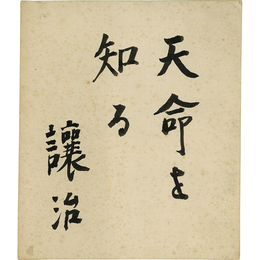 天命を
知る
譲治